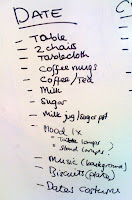 DATE
- Table
- 2 chairs
- Tablecloth
- Coffee mugs
- Coffee/Tea
- Milk
- Sugar
- Milk jug/sugar pot
- Mood lx
• Table lamps
• Stand lamps
- Music (background)
- Biscuits (plate)
- Dates costume